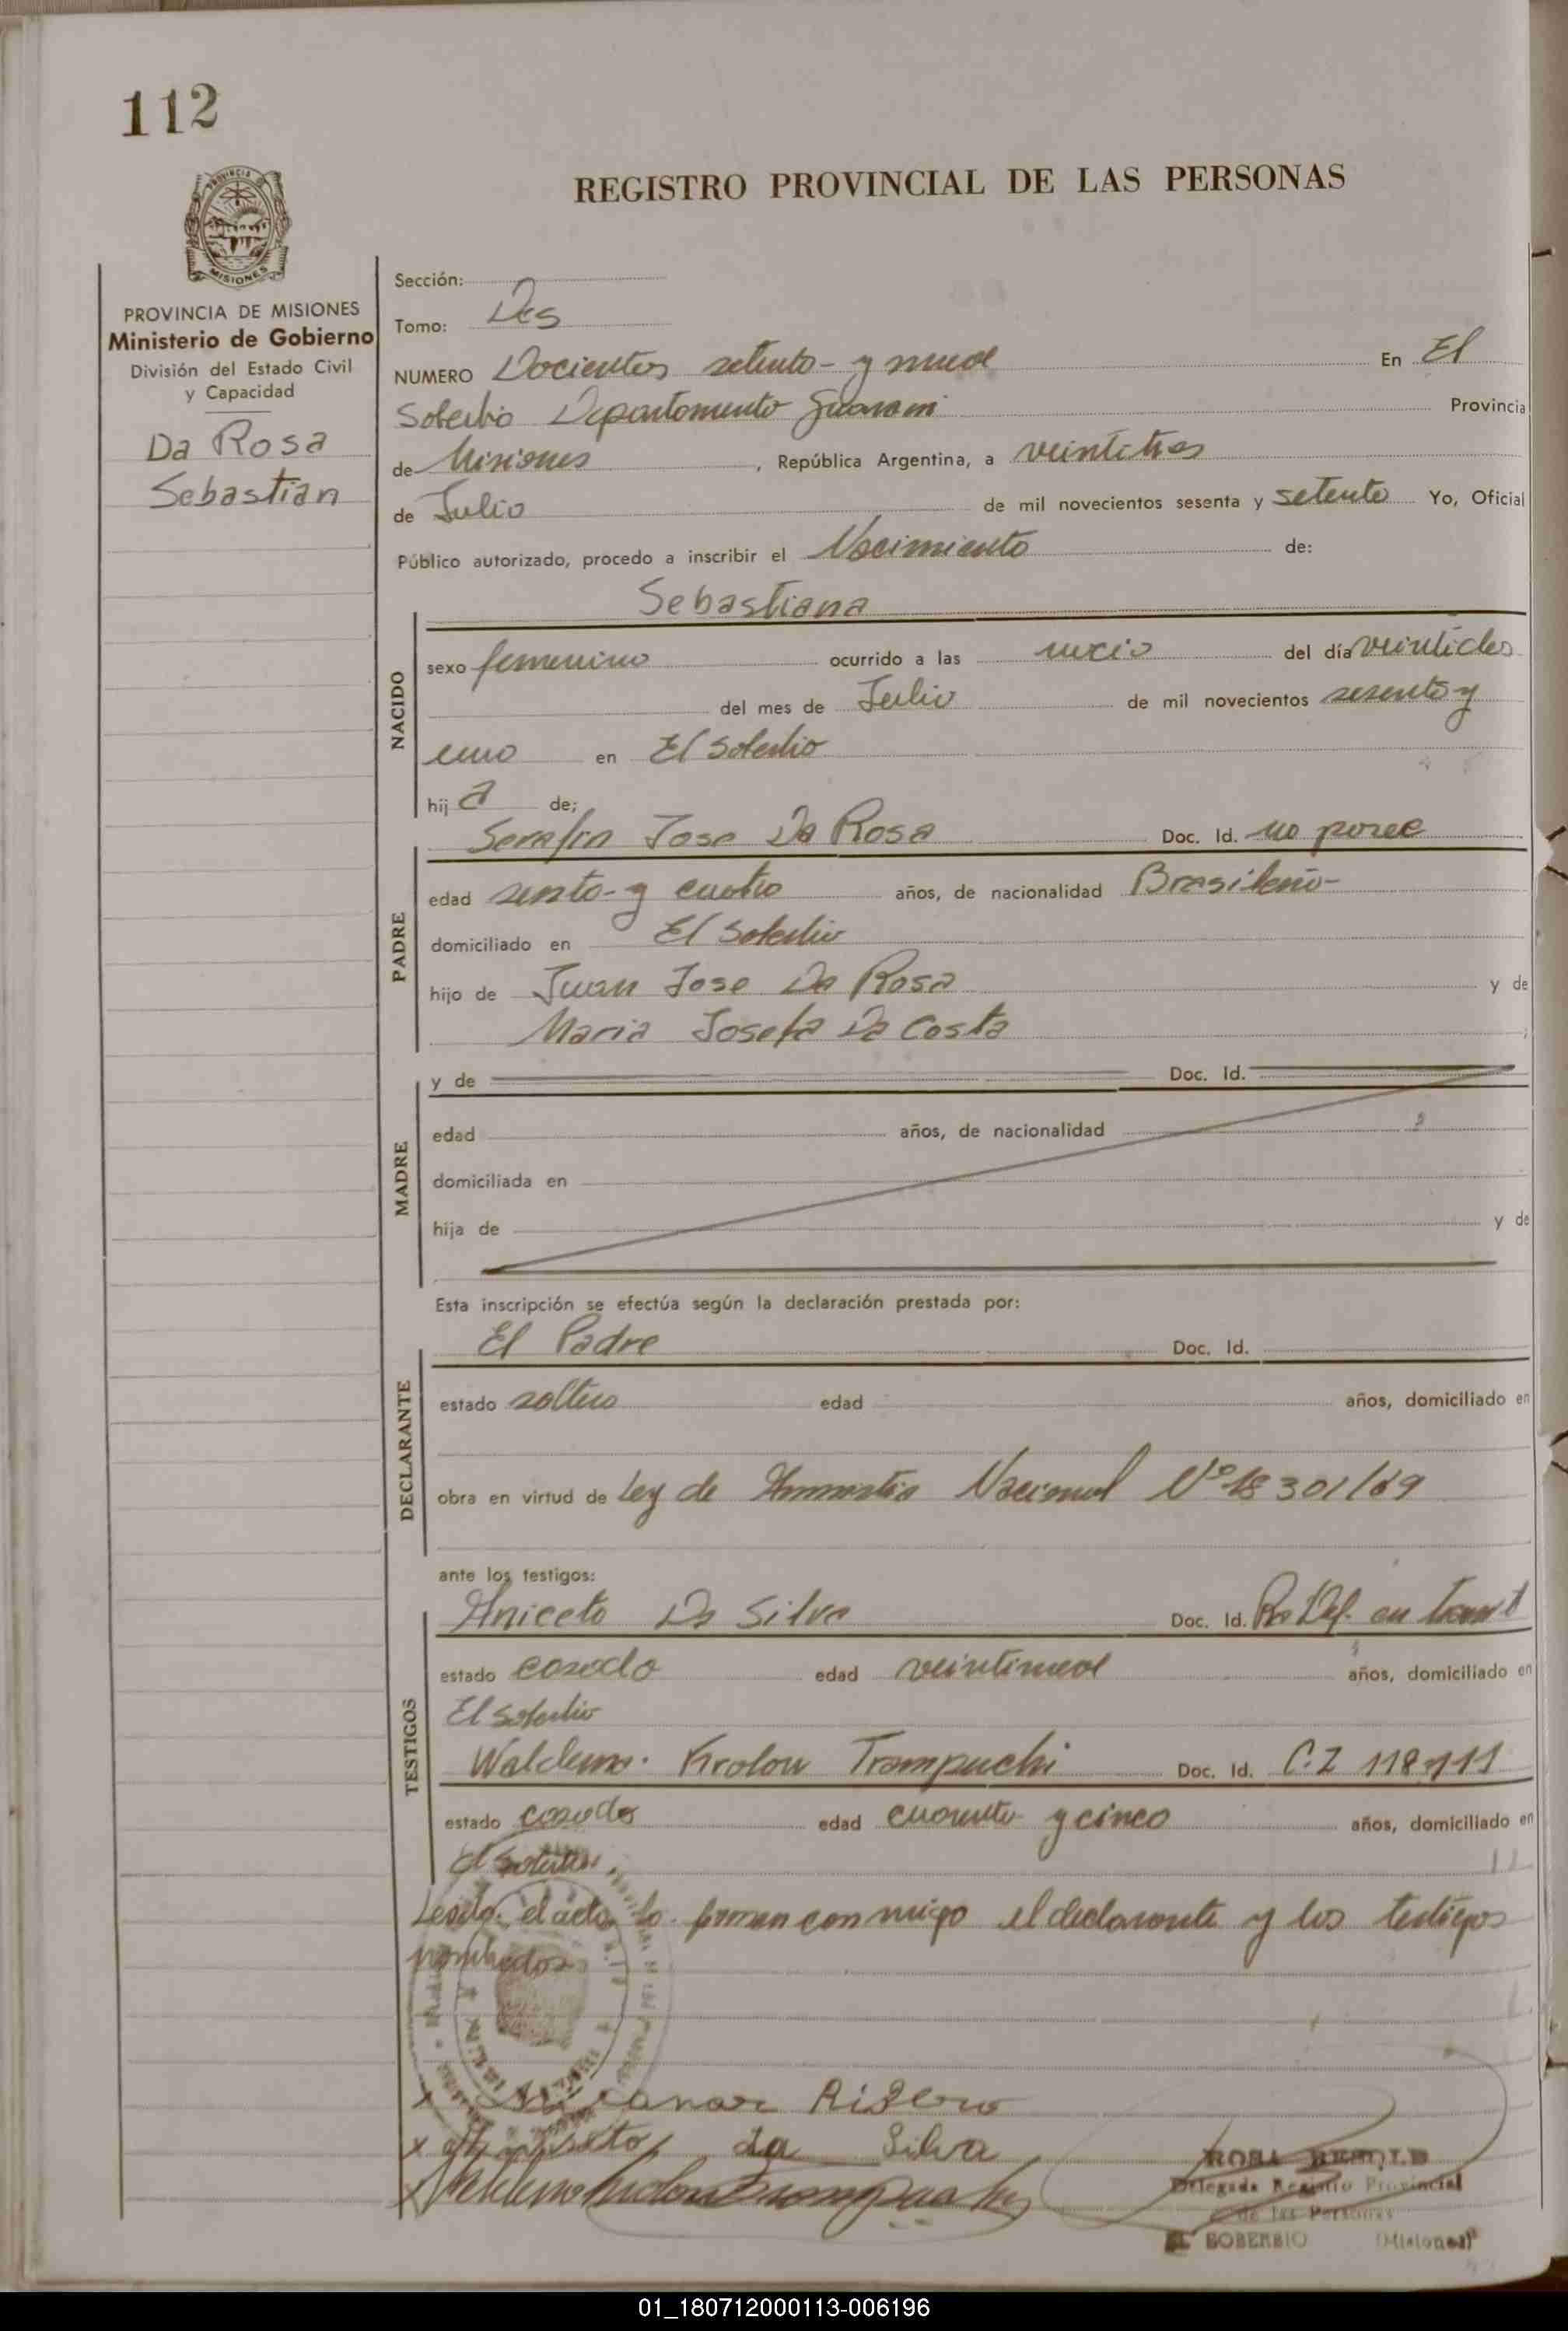 112
REGISTRO PROVINCIAL DE LAS PERSONAS
PROVINCIA
MISIONES
PROVINCIA DE MISIONES
Ministerio de Gobierno
División del Estado Civil
y Capacidad
Da Rosa
Sebastian
Sección:
Tomo: Dos
NUMERO Docientos setenta - y nueve En El
Soberbio Departamento Guarani Provincia
de Misiones, República Argentina, a veintitres
de Julio de mil novecientos sesenta y setenta Yo, Oficial
Público autorizado, procedo a inscribir el Nacimiento de:
Sebastiana
NACIDO
sexo femenino ocurrido a las del día veintidos
del mes de Julio de mil novecientos sesenta y
uno en El Soberbio
hij a de;
Serafin Jose Da Rosa Doc. Id. no posee
PADRE
edad sesenta - y cuatro años, de nacionalidad Brasileño -
domiciliado en El Soberbio
hijo de Juan Jose Da Rosa y de
Maria Josefa Da Costa ;
MADRE
y de Doc. Id.
edad años, de nacionalidad
domiciliada en
hija de y de
Esta inscripción se efectúa según la declaración prestada por:
El Padre Doc. Id.
DECLARANTE
estado soltero edad años, domiciliado en
obra en virtud de Ley de Amnistia Nacional Nº 18301/69
ante los testigos:
Aniceto Da Silva Doc. Id. en
TESTIGOS
estado casado edad veintinueve años, domiciliado en
El Soberbio
Waldemo. Krolow Trampuchi Doc. Id. C.I 118.111
estado casado edad cuarenta y cinco años, domiciliado en
El Soberbio.
Leida el acta lo firman con migo el declarante y los testigos
nombrados
x Ribero
x Aniseto da Silva
x
Delegada Registro Provincial
de las Personas
EL SOBERBIO (Misiones)
01_180712000113-006196